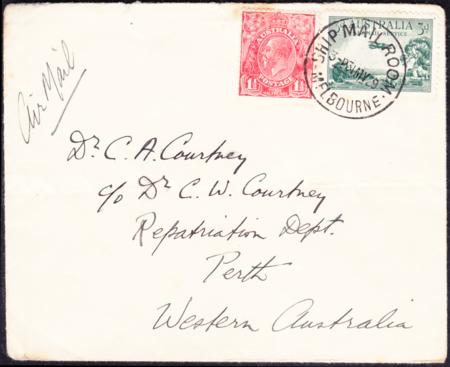 Air Mail
AUSTRALIA
POSTAGE
1½
AUSTRALIA
3D
SHIP MAIL ROOM
MELBOURNE
Dr. C. A. Courtney
c/o Dr C. W. Courtney
Repatriation Dept.
Perth
Western Australia